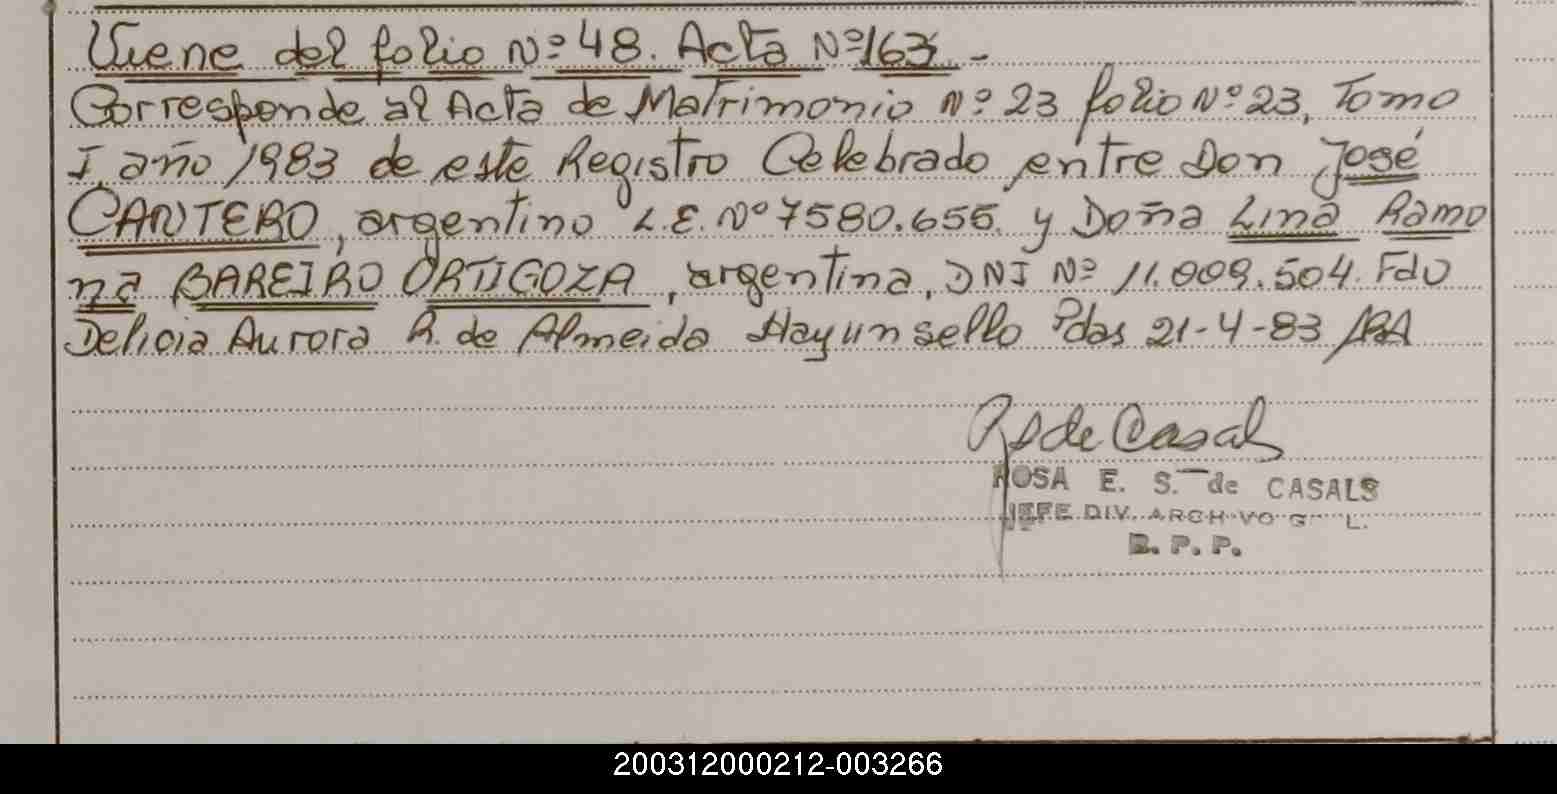 Viene del folio Nº 48. Acta Nº 163.-
Corresponde al Acta de Matrimonio Nº 23 folio Nº 23, Tomo
I, año 1983 de este Registro Celebrado entre Don José
CANTERO, argentino L.E. Nº 7580.655. y Doña Lina Ramo
na BAREIRO ORTIGOZA, argentina, DNI Nº 11.009.504. Fdo
Delicia Aurora R. de Almeida Hay un sello Pdas 21-4-83
de Casals
ROSA E. S. de CASALS
JEFE DIV. ARCHIVO G L.
R. P. P.
200312000212-003266